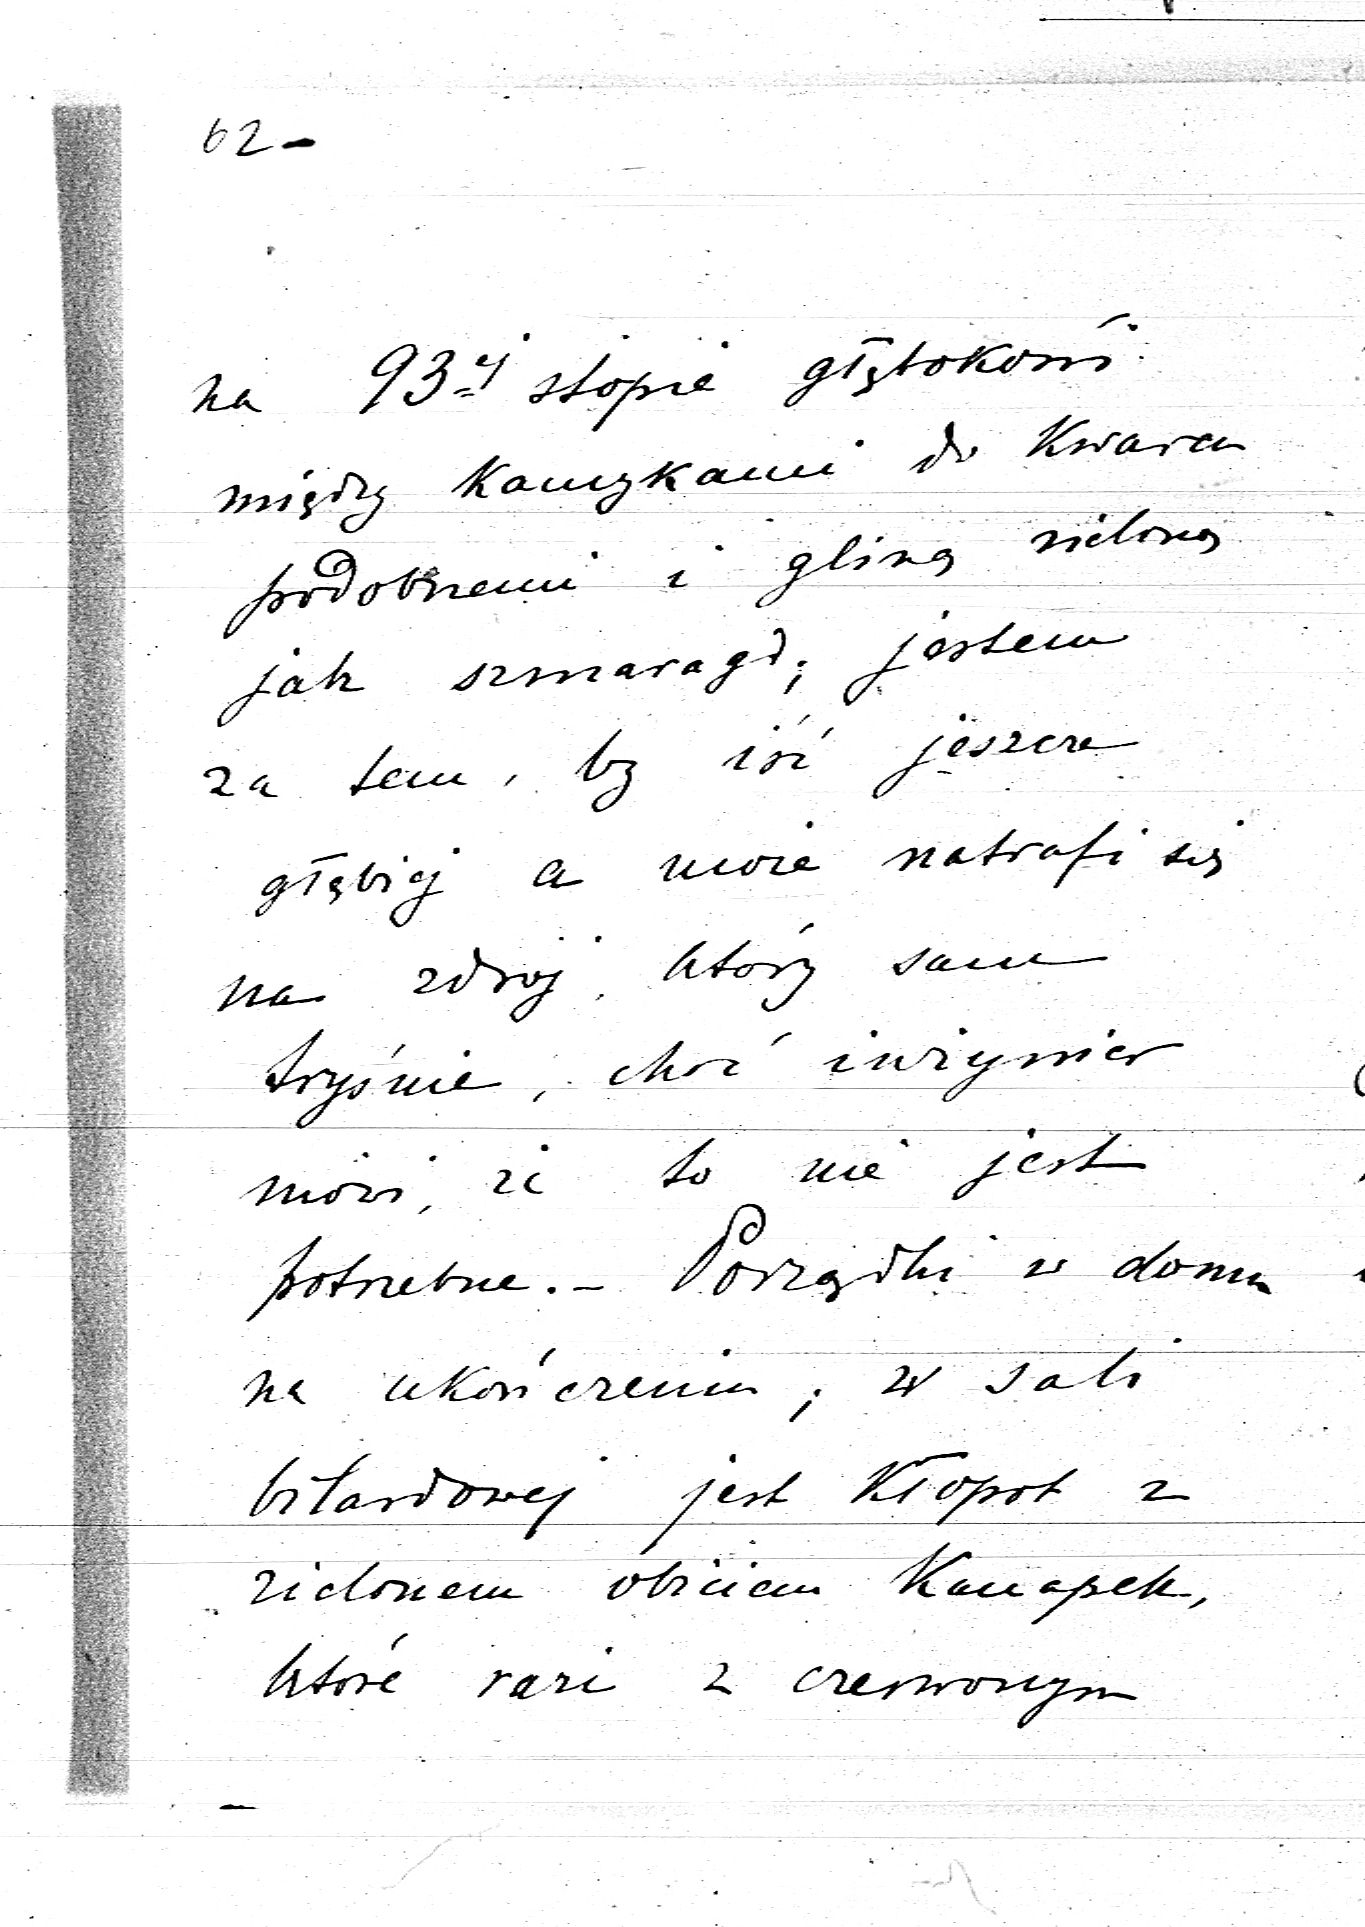 62-
na 93ej stopie głębokości
między kamykami do kwarcu
podobnemi i gliną zieloną
jak szmaragd; jestem
za tem, by iść jeszcze
głębiej a może natrafi się
na zdroj, który sam
tryśnie, choć inżynier
mówi, że to nie jest
potrzebne. - Porządki w domu
na ukończeniu; w sali
bilardowej jest kłopot z
zielonem obiciem kanapek,
które razi z czerwonym